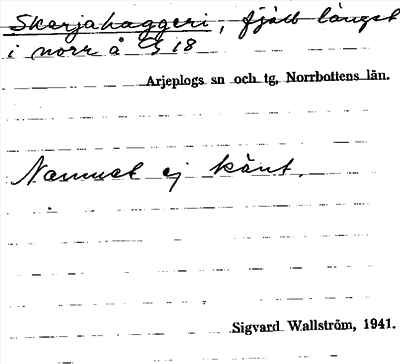 Skerjahaggeri, fjäll längst
i norr å G 18
Arjeplogs sn och tg, Norrbottens län.
Namnet ej känt.
Sigvard Wallström, 1941.